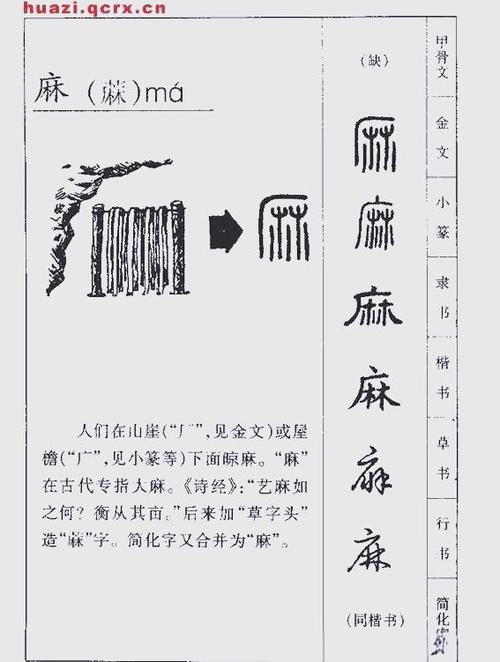 huazi.qcrx.cn
麻（蔴）má
人们在山崖(“厂”,见金文)或屋
檐(“广”,见小篆等)下面晾麻。“麻”
在古代专指大麻。《诗经》:“艺麻如
之何？衡从其亩。”后来加“草字头”
造“蔴”字。简化字又合并为“麻”。
（缺） 甲骨文
麻 金文
麻 小篆
麻 隶书
麻 楷书
麻 草书
麻 行书
(同楷书) 简化字